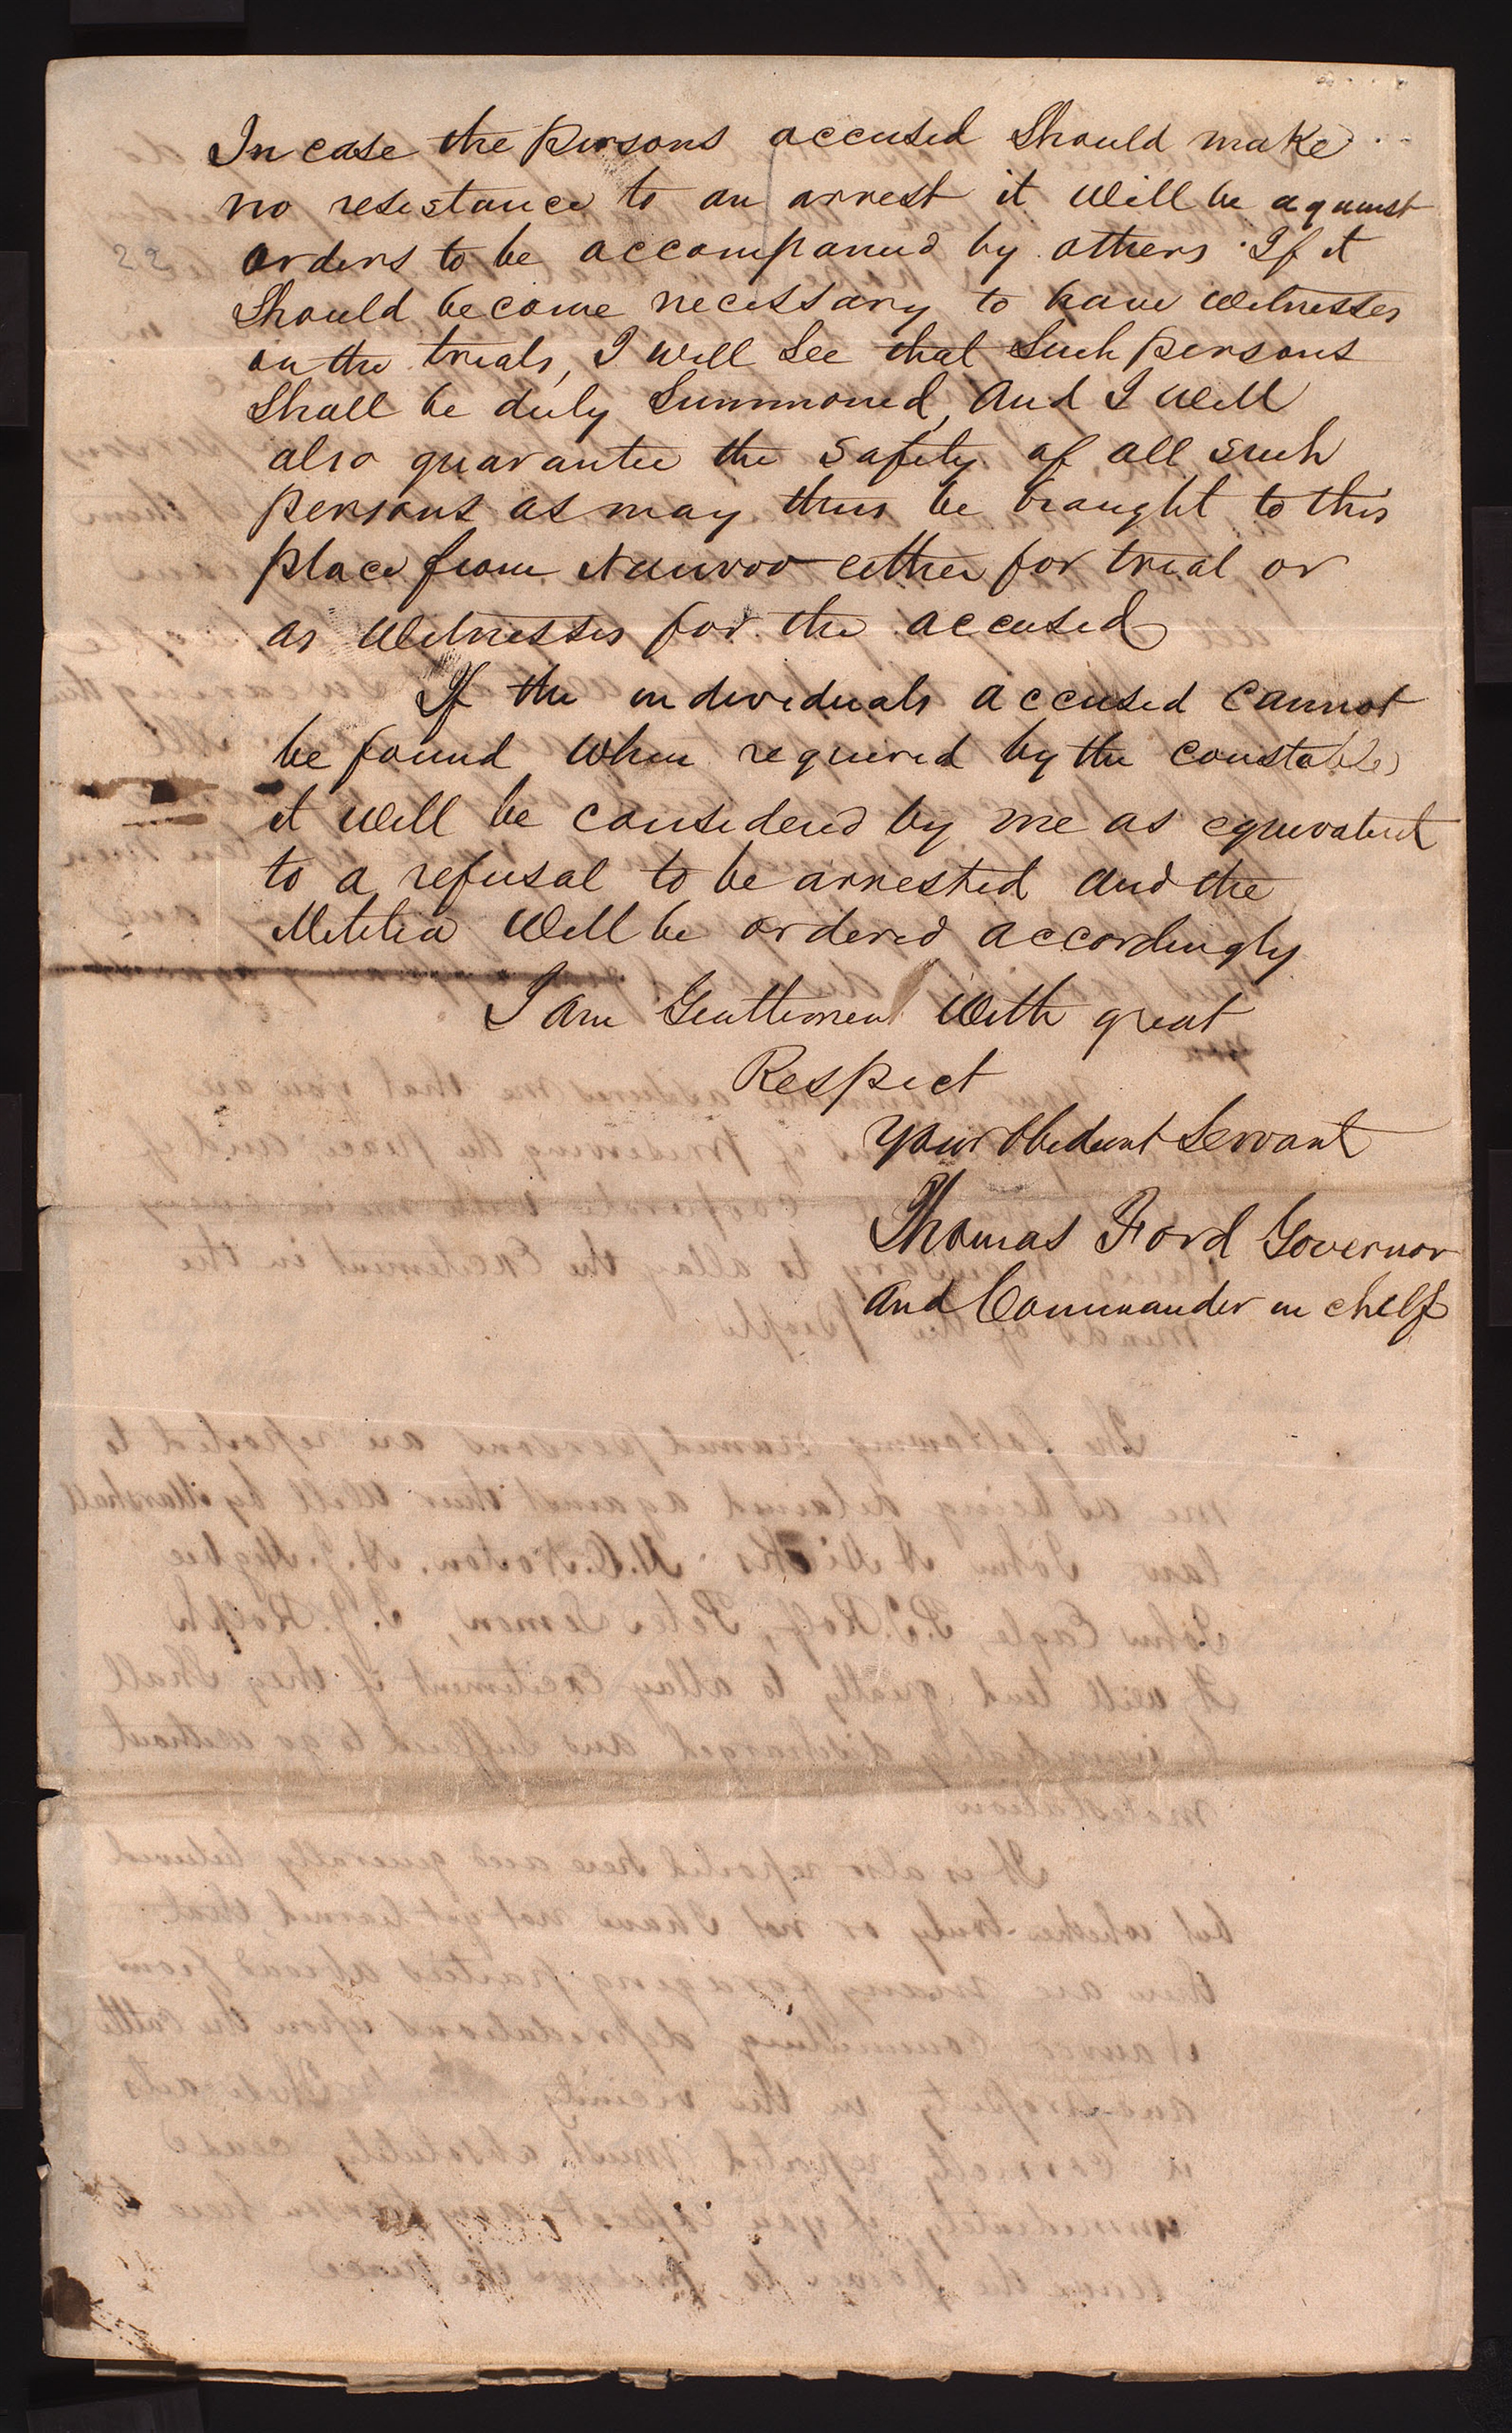 In case the persons accused Should make
no resestance to an arrest it will be against
22
orders to be accompanied by others. If it
Should become necessary to have witnesses
on the trials, I will See that Such persons
Shall be duly Summoned, and I will
also guarantee the Safety of all such
persons as may thus be brought to this
place from Nauvoo either for trial or
as Witnesses for the accused
If the individuals accused cannot
be found when required by the constable
it will be considered by me as equivalent
to a refusal to be arrested and the
Militia will be ordered accordingly
I am Gentlemen with great
Respect
your Obedient Servant
Thomas Ford Governor
and Commander in cheif